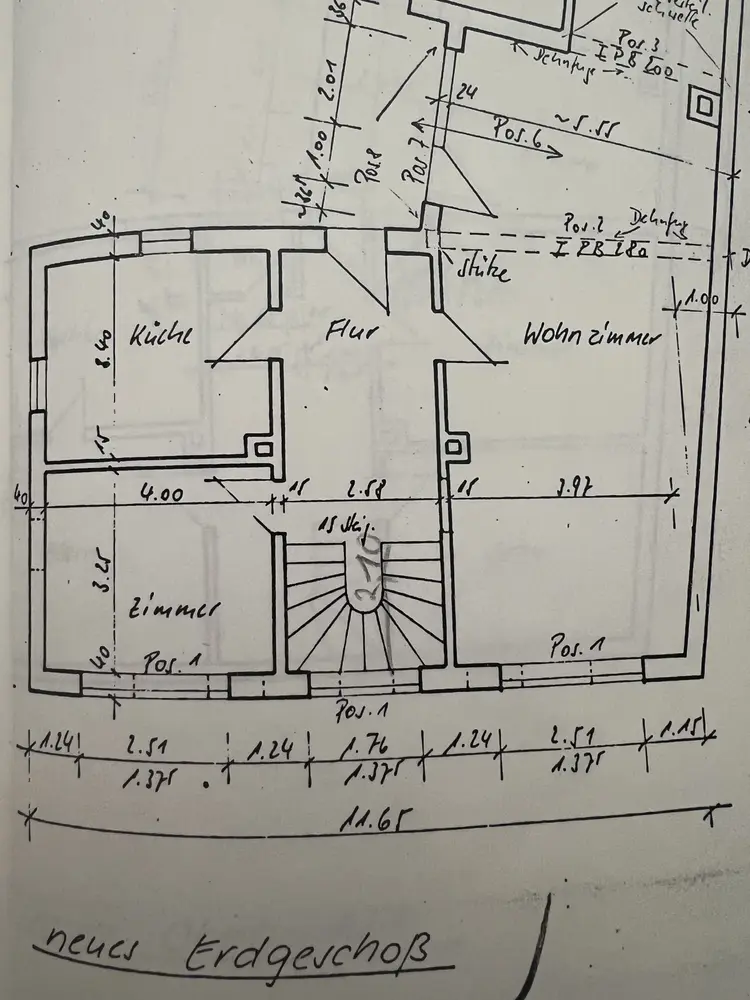 schwelle
Pos. 3
I PB 200
Dehnfuge
36⁵
2.01
1.00
36⁵
Pos. 8
Pos. 7
24
~5.55
Pos. 6
Pos. 2
Dehnfug
I PB 280
Stütze
1.00
40
Küche
Flur
Wohnzimmer
8.40
15
40
4.00
15
2.58
15
3.97
15 Stg.
210
3.25
Zimmer
40
Pos. 1
Pos. 1
Pos. 1
1.24
2.51
1.375
1.24
1.76
1.375
1.24
2.51
1.375
1.15
11.65
neues Erdgeschoß